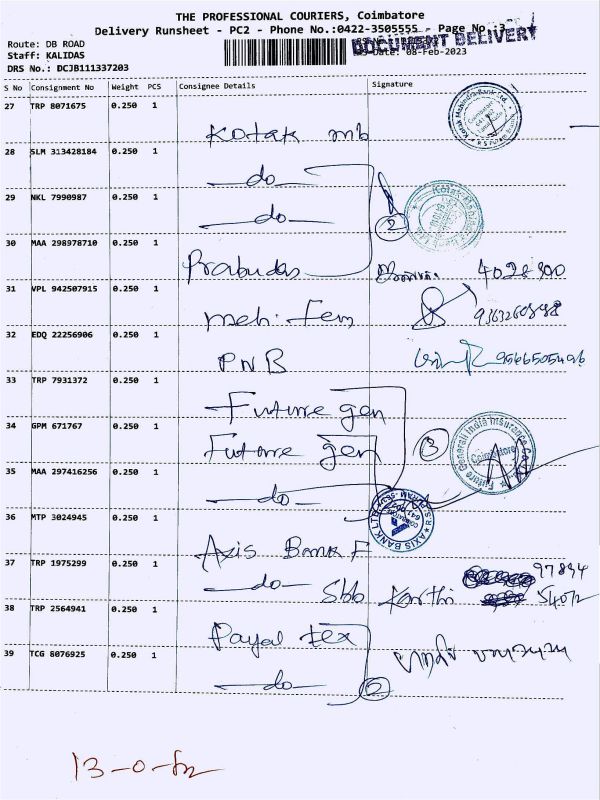 THE PROFESSIONAL COURIERS, Coimbatore
Delivery Runsheet - PC2 - Phone No.:0422-3505555 - Page No.:3
DOCUMENT DELIVERY
Route: DB ROAD
Staff: KALIDAS
Date: 08-Feb-2023
DRS No.: DCJB111337203
S No Consignment No Weight PCS Consignee Details Signature
27 TRP 8071675 0.250 1
Kotak mb
28 SLM 313428184 0.250 1
do
29 NKL 7990987 0.250 1
do
2
30 MAA 298978710 0.250 1
Prabudas
31 VPL 942507915 0.250 1
32 EDQ 22256906 0.250 1
PNB
33 TRP 7931372 0.250 1
Future gen
34 GPM 671767 0.250 1
Future gen
3
Future Generali India Insurance Co
Coimbatore
35 MAA 297416256 0.250 1
do
AXIS BANK LTD
36 MTP 3024945 0.250 1
Axis Bank F
37 TRP 1975299 0.250 1
do Sbb Karthi
97894
54072
38 TRP 2564941 0.250 1
Payal tex
39 TCG 8076925 0.250 1
do
2